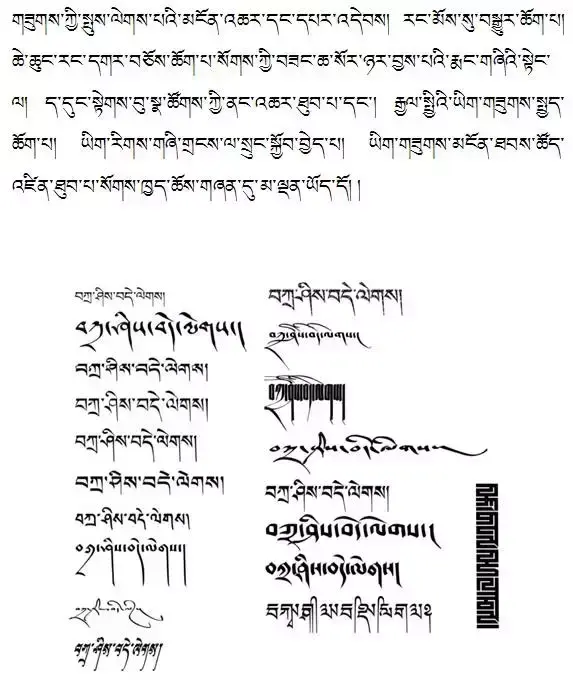 གཟུགས་ཀྱི་སྤུས་ལེགས་པའི་མངོན་འཆར་དང་དཔར་འདེབས། རང་མོས་སུ་བསྒྱུར་ཆོག་པ།
ཆེ་ཆུང་རང་དགར་བཅོས་ཆོག་པ་སོགས་ཀྱི་བཟང་ཆ་སོར་ཉར་བྱས་པའི་རྨང་གཞིའི་སྟེང་
ལ། ད་དུང་སྟེགས་བུ་སྣ་ཚོགས་ཀྱི་ནང་འཆར་ཐུབ་པ་དང་། རྒྱལ་སྤྱིའི་ཡིག་གཟུགས་སྤྱད་
ཆོག་པ། ཡིག་རིགས་གཞི་གྲངས་ལ་སྲུང་སྐྱོབ་བྱེད་པ། ཡིག་གཟུགས་མངོན་ཐབས་ཚོད་
འཛིན་ཐུབ་པ་སོགས་ཁྱད་ཆོས་གཞན་དུ་མ་ལྡན་ཡོད་དོ། །
བཀྲ་ཤིས་བདེ་ལེགས།
བཀྲ་ཤིས་བདེ་ལེགས།།
བཀྲ་ཤིས་བདེ་ལེགས།
བཀྲ་ཤིས་བདེ་ལེགས།
བཀྲ་ཤིས་བདེ་ལེགས།
བཀྲ་ཤིས་བདེ་ལེགས།
བཀྲ་ཤིས་བདེ་ལེགས།
བཀྲ་ཤིས་བདེ་ལེགས།།
བཀྲ་ཤིས་བདེ་ལེགས།
བཀྲ་ཤིས་བདེ་ལེགས།
བཀྲ་ཤིས་བདེ་ལེགས།
བཀྲ་ཤིས་བདེ་ལེགས།
བཀྲ་ཤིས་བདེ་ལེགས།
བཀྲ་ཤིས་བདེ་ལེགས།།
བཀྲ་ཤིས་བདེ་ལེགས།